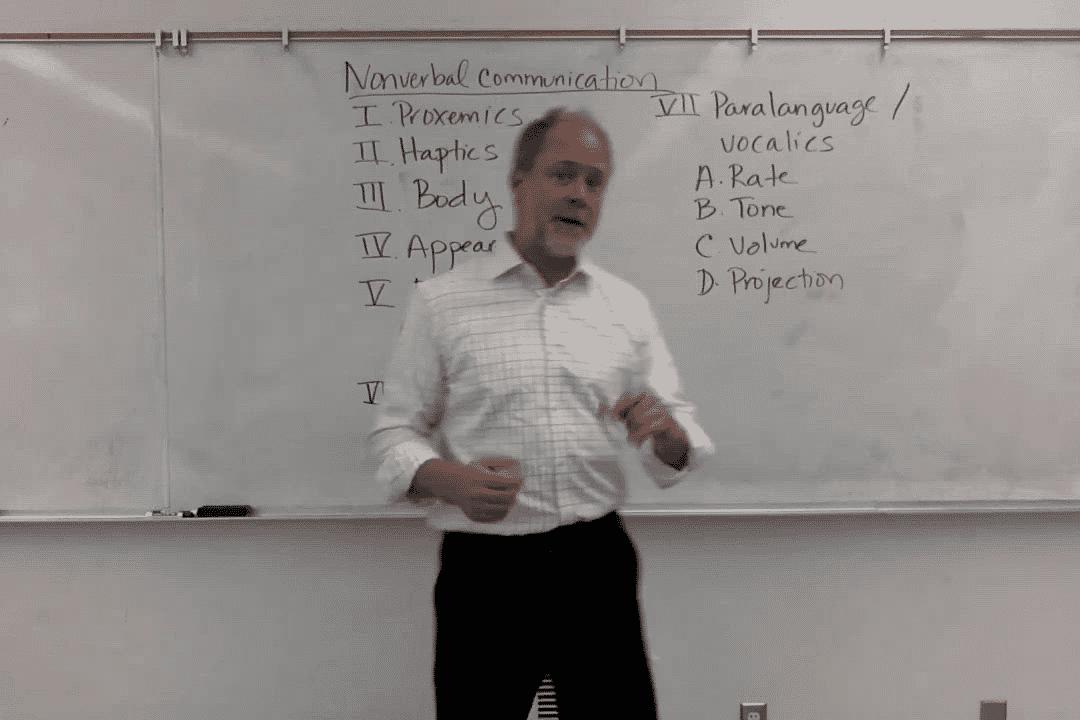 Nonverbal Communication
I. Proxemics
II. Haptics
III. Body
IV. Appear
V
V
VII Paralanguage /
vocalics
A. Rate
B. Tone
C Volume
D. Projection